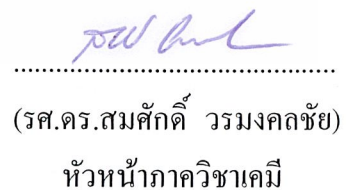 (รศ.ดร.สมศักดิ์ วรมงคลชัย)
หัวหน้าภาควิชาเคมี